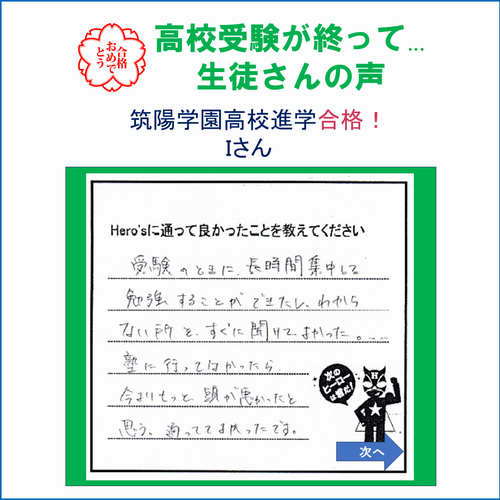 合格
おめで
とう
高校受験が終って...
生徒さんの声
筑陽学園高校進学合格！
Iさん
Hero'sに通って良かったことを教えてください
受験のときに、長時間集中して
勉強することができたし、わから
ない所も、すぐに聞けてよかった。
塾に行ってなかったら、
今よりもっと、頭が悪かったと
思う、通っててよかったです。
次の
ヒーロー
は君だ!
H
次へ